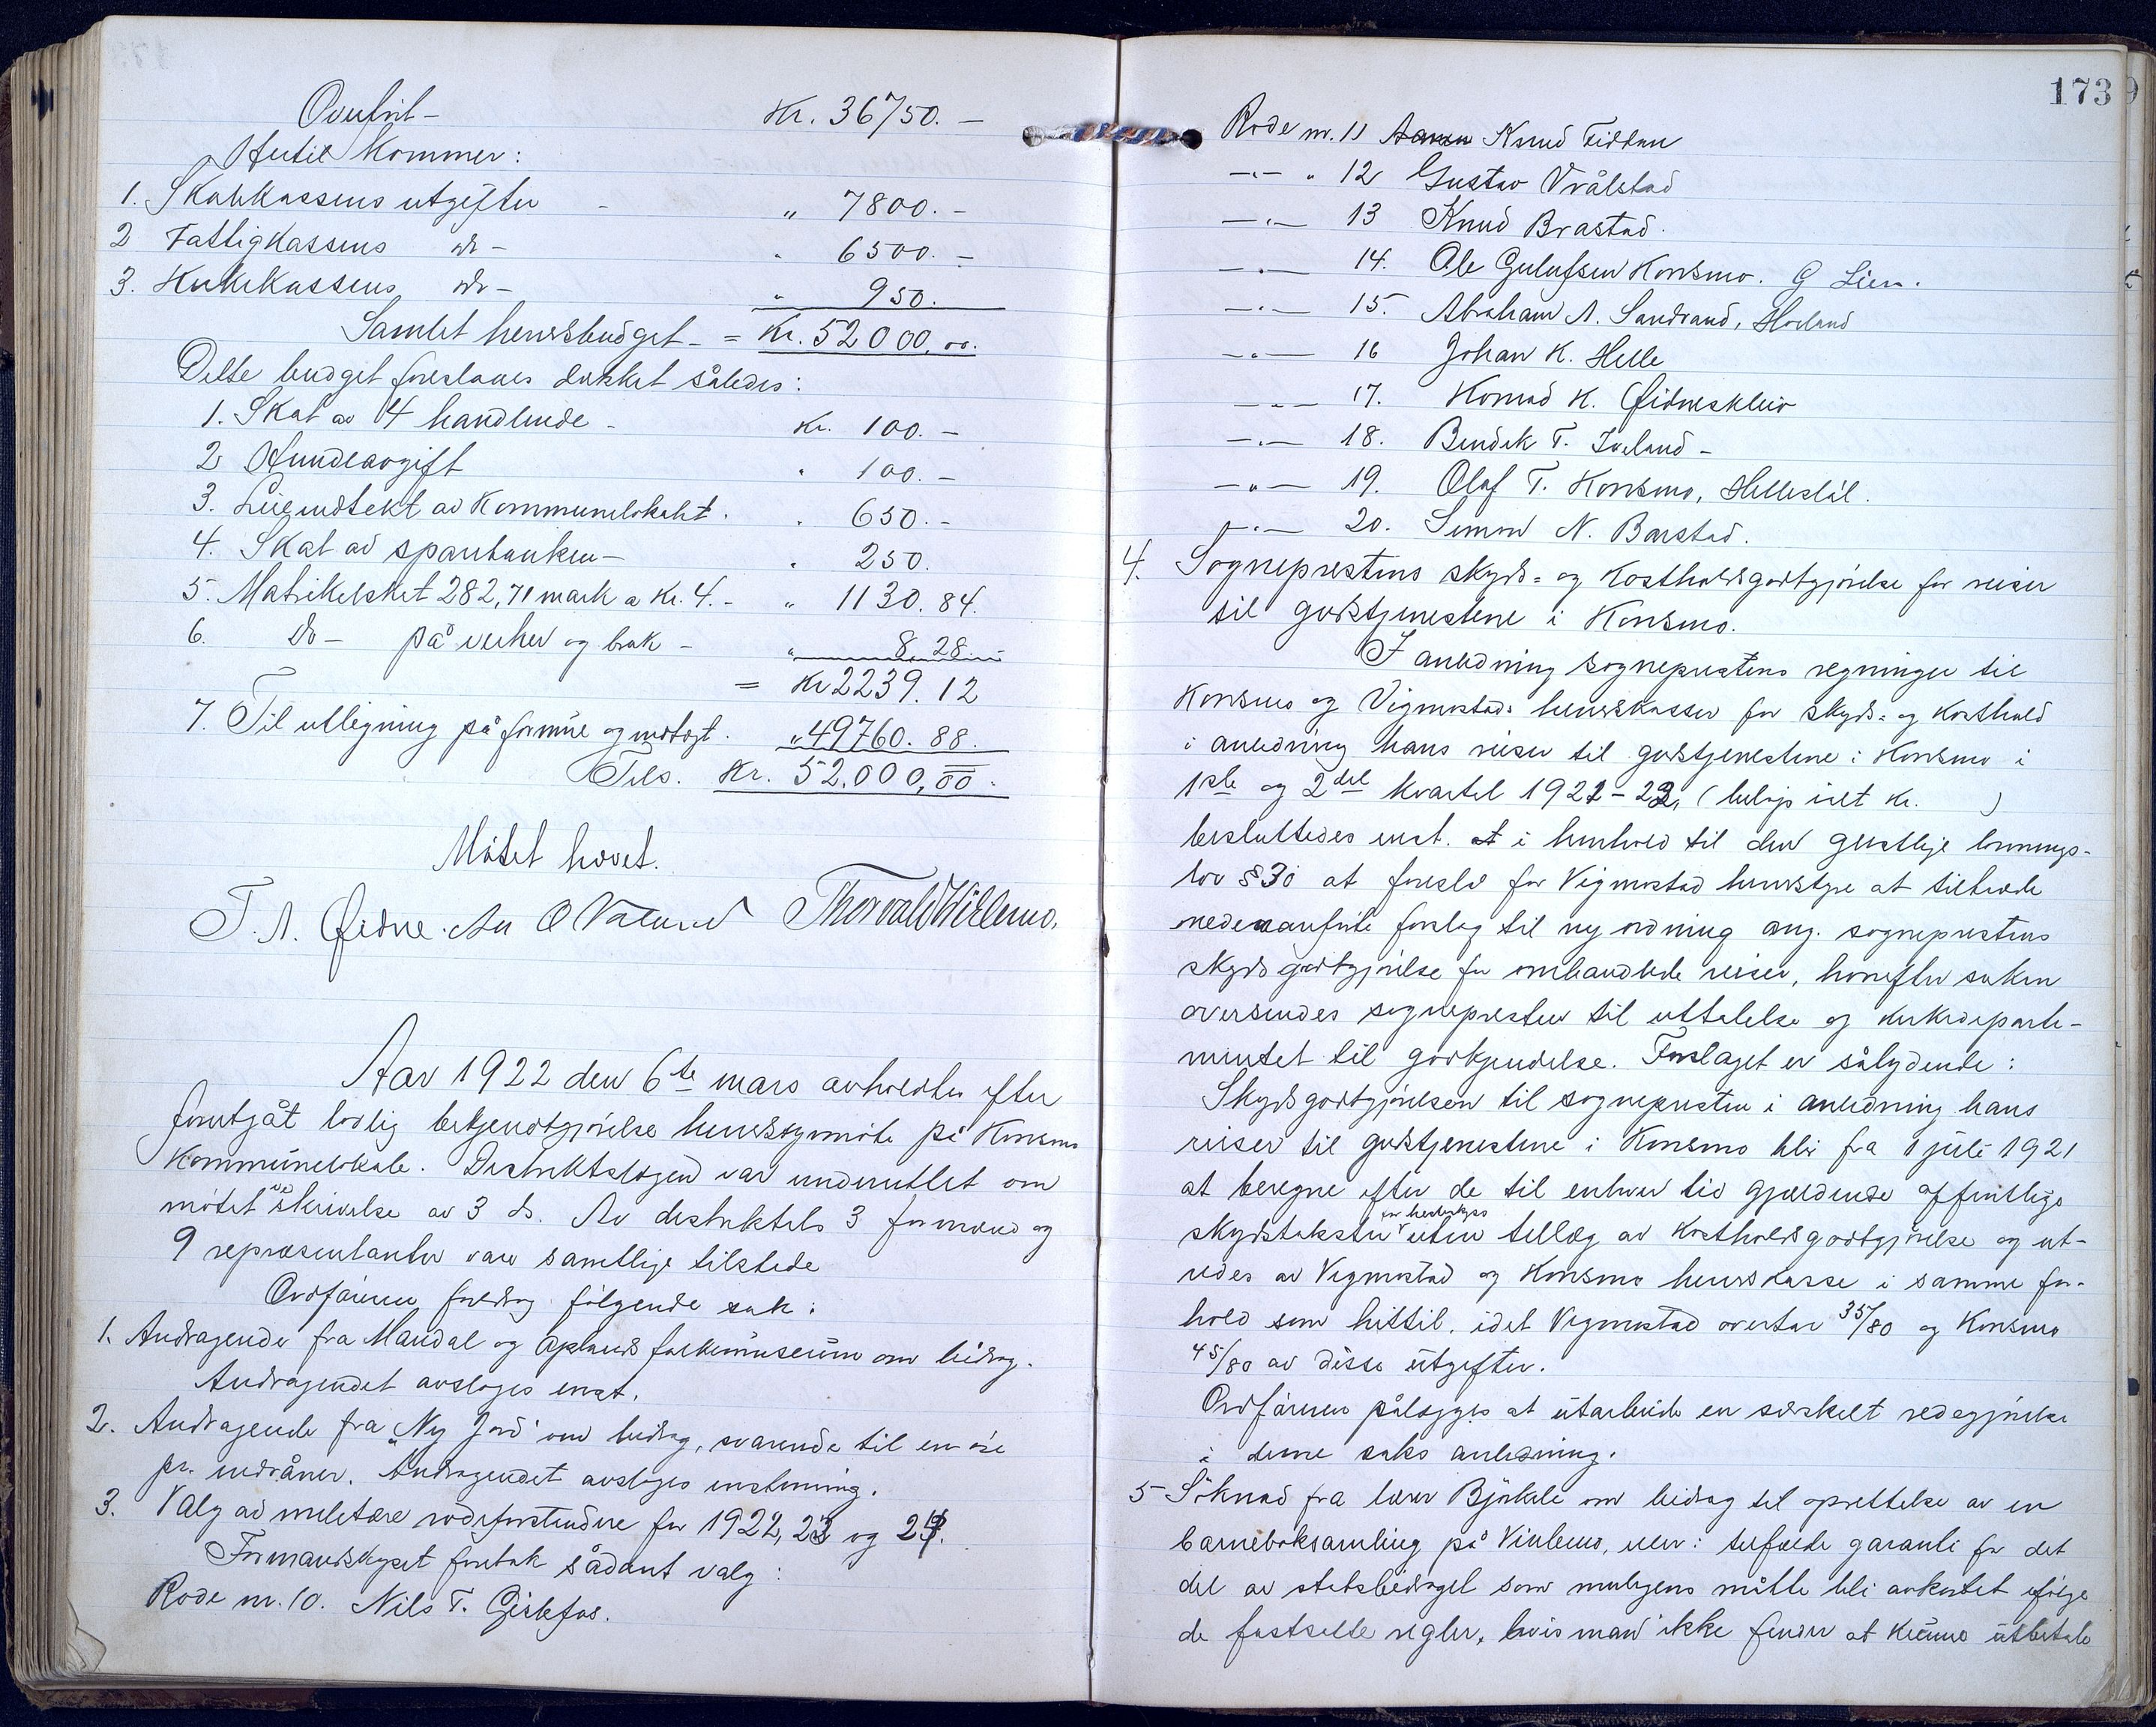 Overført – Kr. 36750. –
Hertil kommer:
1. Skolekassens utgifter – " 7800. –
2 Fattigkassens do – " 6500. –
3. Kirkekassens do – " 950.
Samlet herredsbudget – = Kr. 52000,00.
Dette budget foreslaaes dækket således:
1. Skat av 4 handlende – Kr. 100. –
2 Hundeavgift " 100. –
3. Leieindtekt av Kommunelokalet. " 650. –
4. Skat av sparebanken – " 250.
5. Matrikelskat 282,71 mark a Kr. 4. – " 1130. 84.
6. Do – på verker og bruk – " 8.28. –
= Kr 2239. 12
7. Til utligning på formue og indtægt. " 49760. 88.
Tils. Kr. 52.000,00.
Møtet hævet.
T. A. Øidne. O Valand Thorvald
Aar 1922 den 6te mars avholdtes efter
foretgåt lovlig bekjendtgjørelse herredsstyremøte på Konsmo
Kommunelokale. Distriktslægen var underrettet om
møtet ved skrivelse av 3 ds. Av distriktets 3 formænd og
9 repræsentanter vare samtlige tilstede
Ordføreren foredrog følgende sak:
1. Andragende fra Mandal og Oplands folkemuseum om bidrag.
Andragendet avsloges enst.
2. Andragende fra "Ny Jord" om bidrag, svarende til en øre
pr. indvåner. Andragendet avsloges enstemmig.
3. Valg av militære rodeforstandere for 1922, 23 og 24.
Formandskapet foretok sådant valg:
Rode nr. 10. Nils T. Gislefos.
173
Rode nr. 11 Knud Fidtan
–"– " 12 Gustav Vrålstad
–"– 13 Knud Brastad.
–"– 14. Ole Gulufsen Konsmo. G Lien.
–"– 15. Abraham A. Sandvand, Høiland
–"– 16 Johan K. Helle
–"– 17. Konrad K. Øidneskleiv
–"– 18. Bendik T. Iveland –
–"– 19. Olaf T. Konsmo, Hellestøl.
–"– 20. Simon N. Barstad.
4. Sogneprestens skyds- og kostholdsgodtgjørelse for reiser
til gudstjenestene i Konsmo.
I anledning sogneprestens regninger til
Konsmo og Vigmostads herredskasser for skyds- og kosthold
i anledning hans reiser til gudstjenestene i Konsmo i
1ste og 2det kvartal 1921–22, (beløp ialt kr. )
besluttedes enst. at i henhold til den geistlige lønnings-
lov § 30 at foreslå for Vigmostad herredstyre at tiltræde
nedenanførte forslag til ny ordning ang. sogneprestens
skydsgodtgjørelse for omhandlede reiser, hvorefter saken
oversendes sognepresten til uttalelse og kirkedeparte-
mentet til godkjendelse. Forslaget er sålydende:
Skydsgodtgjørelsen til sognepresten i anledning hans
reiser til gudstjenestene i Konsmo blir fra 1 juli 1921
at beregne efter de til enhver tid gjældende offentlige
skydstakster for hesteskyds uten tillæg av kostholdsgodtgjørelse og ut-
redes av Vigmostad og Konsmo herredskasse i samme for-
hold som hittil, idet Vigmostad overtar 35/80 og Konsmo
45/80 av disse utgifter.
Ordføreren pålægges at utarbeide en særskilt redegjørelse
i denne saks anledning.
5 Søknad fra lærer Bjørkele om bidrag til oprettelse av en
barneboksamling på Vinlemo, ell: i tilfælde garanti for det
del av statsbidraget som muligens måtte bli avkortet ifølge
de fastsatte regler, hvis man ikke finder at kunne utbetale